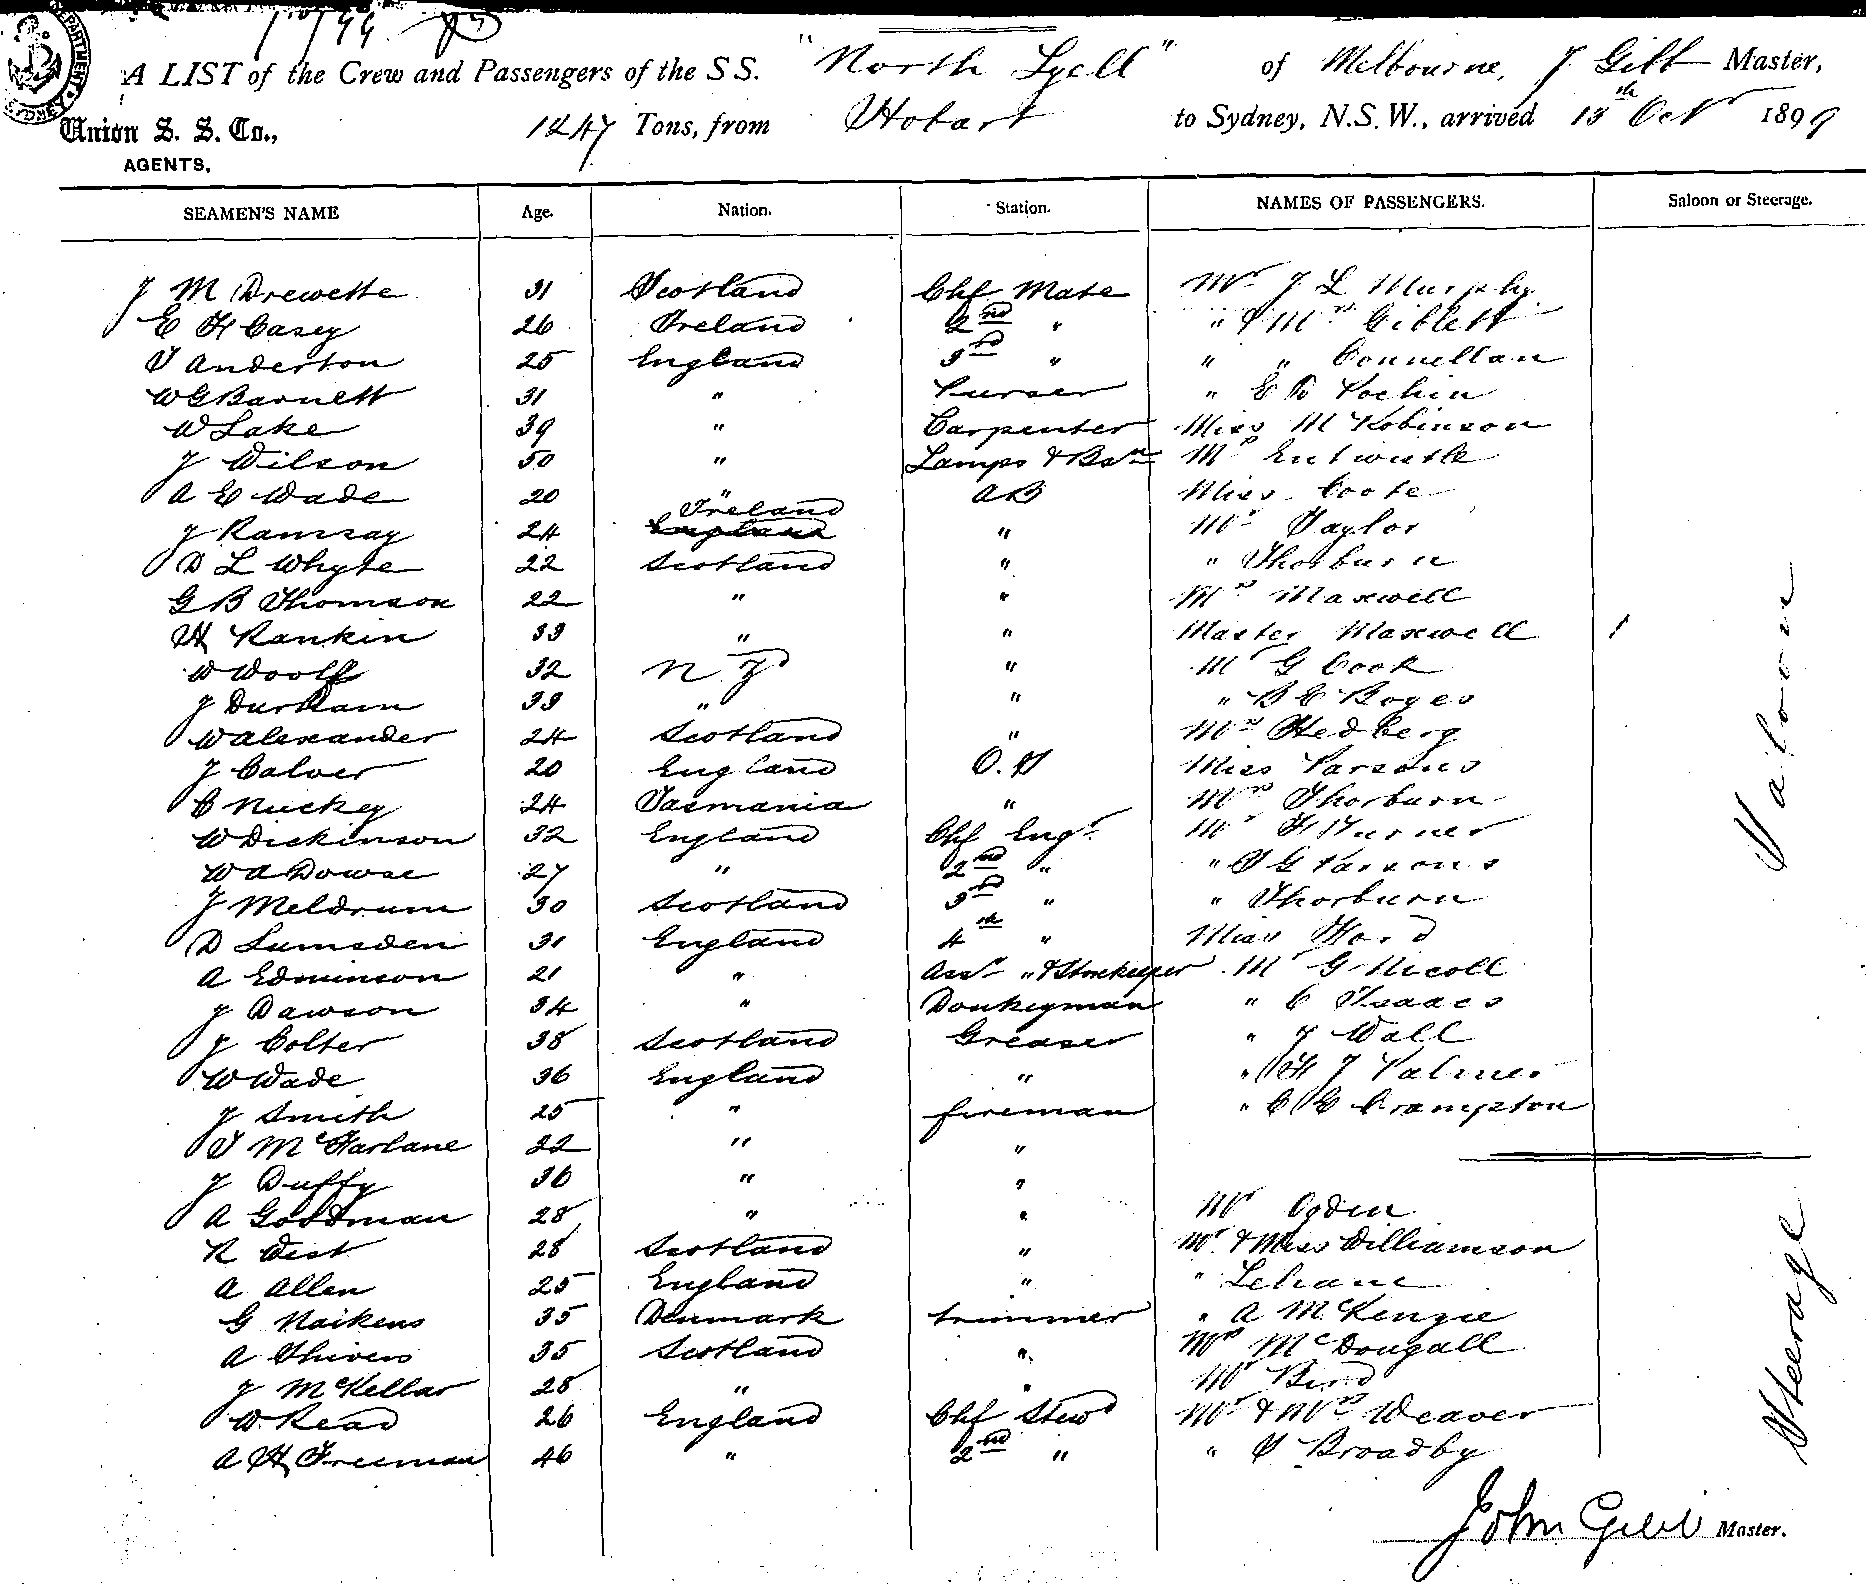 A LIST of the Crew and Passengers of the S S. "North Lyell" of Melbourne, J Gibb Master,
Union S. S. Co., 1247 Tons, from Hobart to Sydney, N.S.W., arrived 15th Oct 1899
AGENTS.
SEAMEN'S NAME Age. Nation. Station. NAMES OF PASSENGERS. Saloon or Steerage.
J M Drewette 31 Scotland Chf Mate Mr J L Murphy
E H Casey 26 Ireland 2nd " " & Mrs Giblett
T Anderton 25 England 3rd " " " Connellan
W G Barnett 31 " Purser " E B Pochin
W Lake 39 " Carpenter Miss M Robinson
J Wilson 50 " Lamps & Bsn Mrs Entwistle
A E Wade 20 " AB Miss Coote
J Ramsay 24 Ireland " Mr Taylor
D L Whyte 22 Scotland " " Thorburn
G B Thomson 22 " " Mrs Maxwell
H Rankin 33 " " Master Maxwell 1
W Woolf 32 N Z " Mr G Cook
J Durham 33 " " " B C Boyes
W Alexander 24 Scotland " Mrs Hedberg
J Calver 20 England O.S Miss Parsons
C Nuckey 24 Tasmania " Mrs Thorburn
W Dickinson 32 England Chf Engr Mr H Turner
W A Dowse 27 " 2nd " " T G Parsons
J Meldrum 30 Scotland 3rd " " Thorburn
D Lumsden 31 England 4th " Miss Ford
A Edminson 21 " Asst " & Storekeeper Mr G Nicoll
J Dawson 34 " Donkeyman " C Isaacs
J Colter 38 Scotland Greaser " J Wall
W Wade 36 England " " H J Palmer
J Smith 25 " fireman " C E Crampton
T McFarlane 22 " "
J Duffy 36 " "
A Goodman 28 " " Mr Ogden
R West 28 Scotland " Mr & Miss Williamson
A Allen 25 England " " Lehane
G Naikens 35 Denmark trimmer " A McKenzie
A Shivers 35 Scotland " Mrs McDougall
J McKellar 28 " " Mr Bird
W Read 26 England Chf Stewd Mr & Mrs Weaver
A H Freeman 46 " 2nd " " T Broadby
Saloon
Steerage
John Gibb Master.